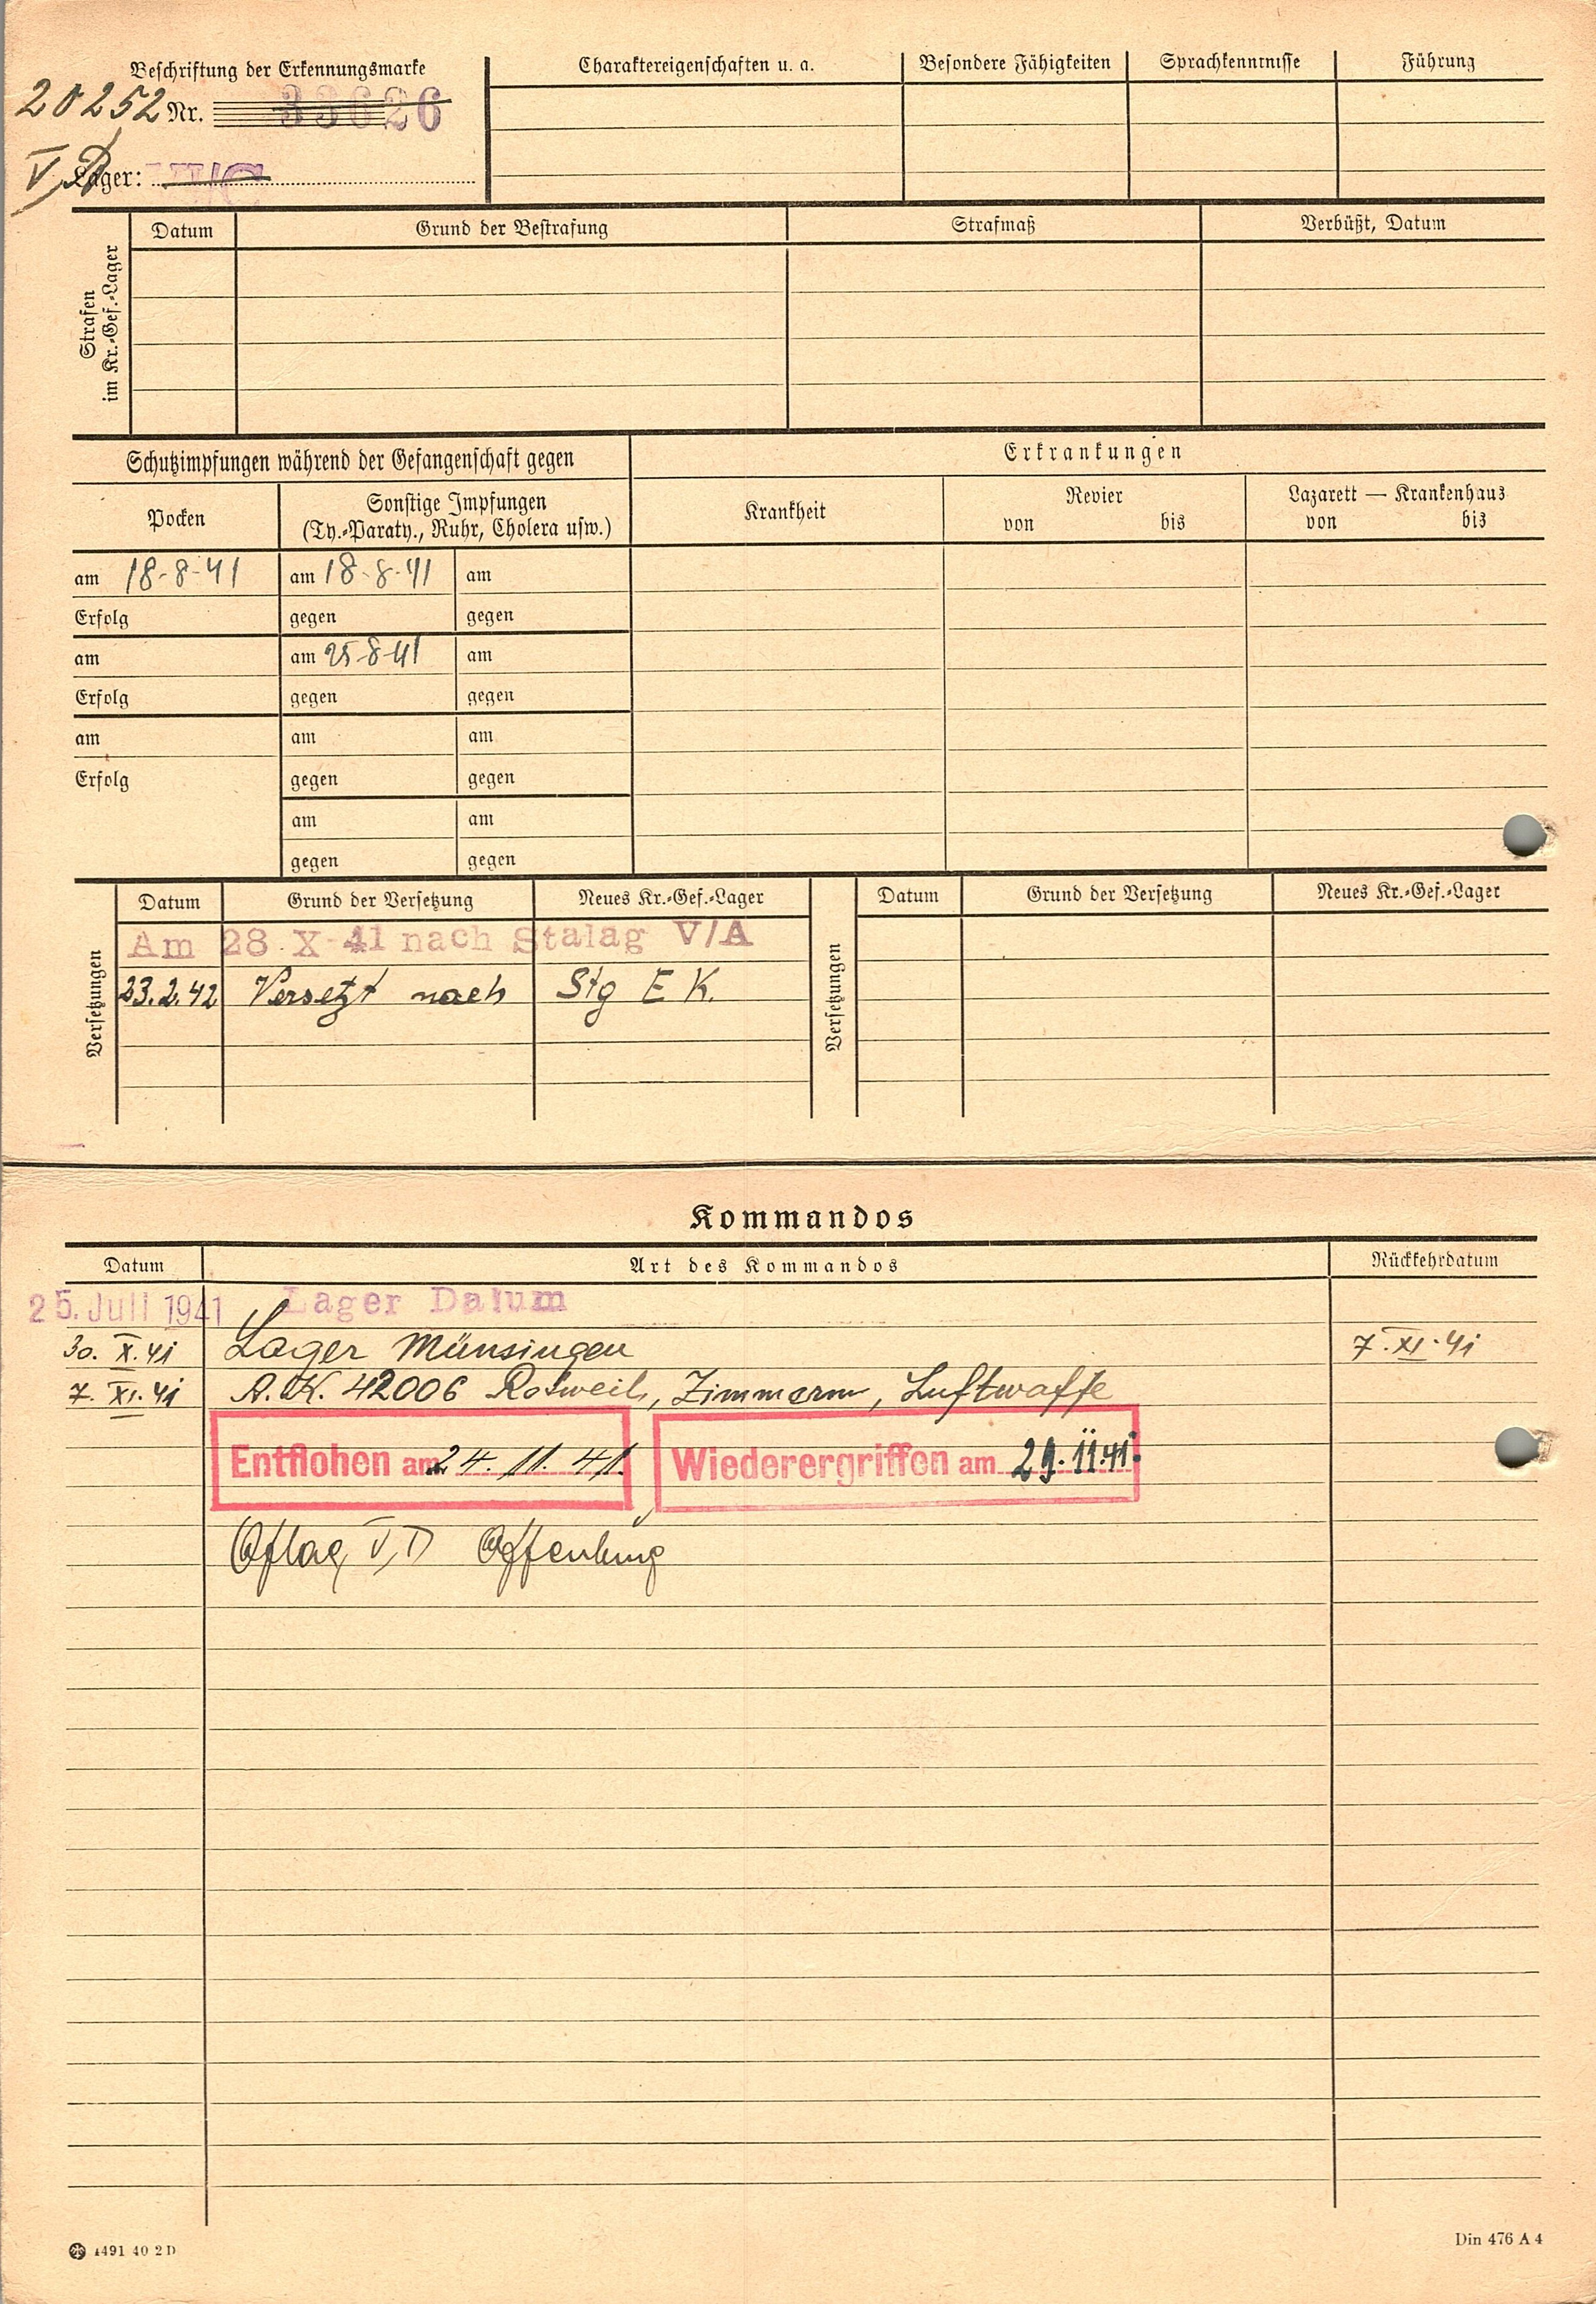 Beschriftung der Erkennungsmarke
20252 Nr. 33626
V D Lager: VI/C
Charaktereigenschaften u. a. Besondere Fähigkeiten Sprachkenntnisse Führung
Strafen im Kr.-Gef.-Lager
Datum Grund der Bestrafung Strafmaß Verbüßt, Datum
Schutzimpfungen während der Gefangenschaft gegen
Erkrankungen
Pocken
Sonstige Impfungen
(Ty.-Paraty., Ruhr, Cholera usw.)
Krankheit
Revier
von bis
Lazarett — Krankenhaus
von bis
am 18-8-41 am 18-8-41 am
Erfolg gegen gegen
am am 25-8-41 am
Erfolg gegen gegen
am am am
Erfolg gegen gegen
am am
gegen gegen
Versetzungen
Datum Grund der Versetzung Neues Kr.-Gef.-Lager
Am 28 X 41 nach Stalag V/A
23.2.42 Versetzt nach Stg E K.
Versetzungen
Datum Grund der Versetzung Neues Kr.-Gef.-Lager
Kommandos
Datum Art des Kommandos Rückkehrdatum
25. Juli 1941 Lager Datum
30. X. 41 Lager Münsingen 7. XI. 41
7. XI. 41 A.K. 42006 Rotweil, Zimmerm, Luftwaffe
Entflohen am 24. 11. 41. Wiederergriffen am 29.11.41.
Oflag V, D Offenburg
1491 40 2 D
Din 476 A 4